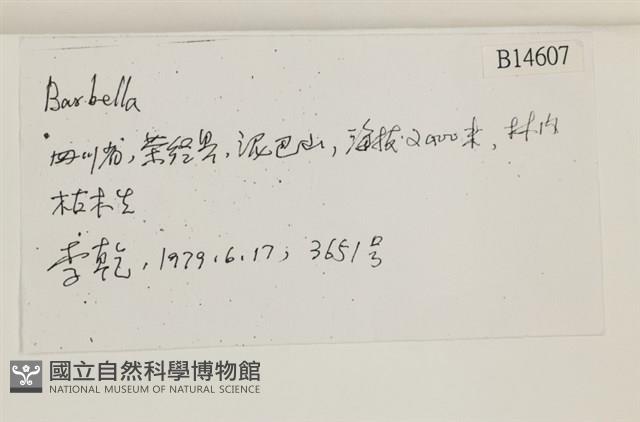 B14607
Barbella
四川省，荥经县，泥巴山，海拔2400来，林内
枯木生
李乾，1979.6.17；3651号
國立自然科學博物館
NATIONAL MUSEUM OF NATURAL SCIENCE